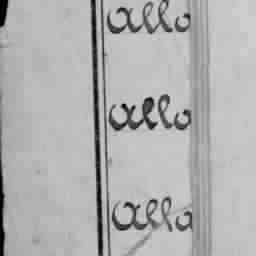 allo
allo
allo